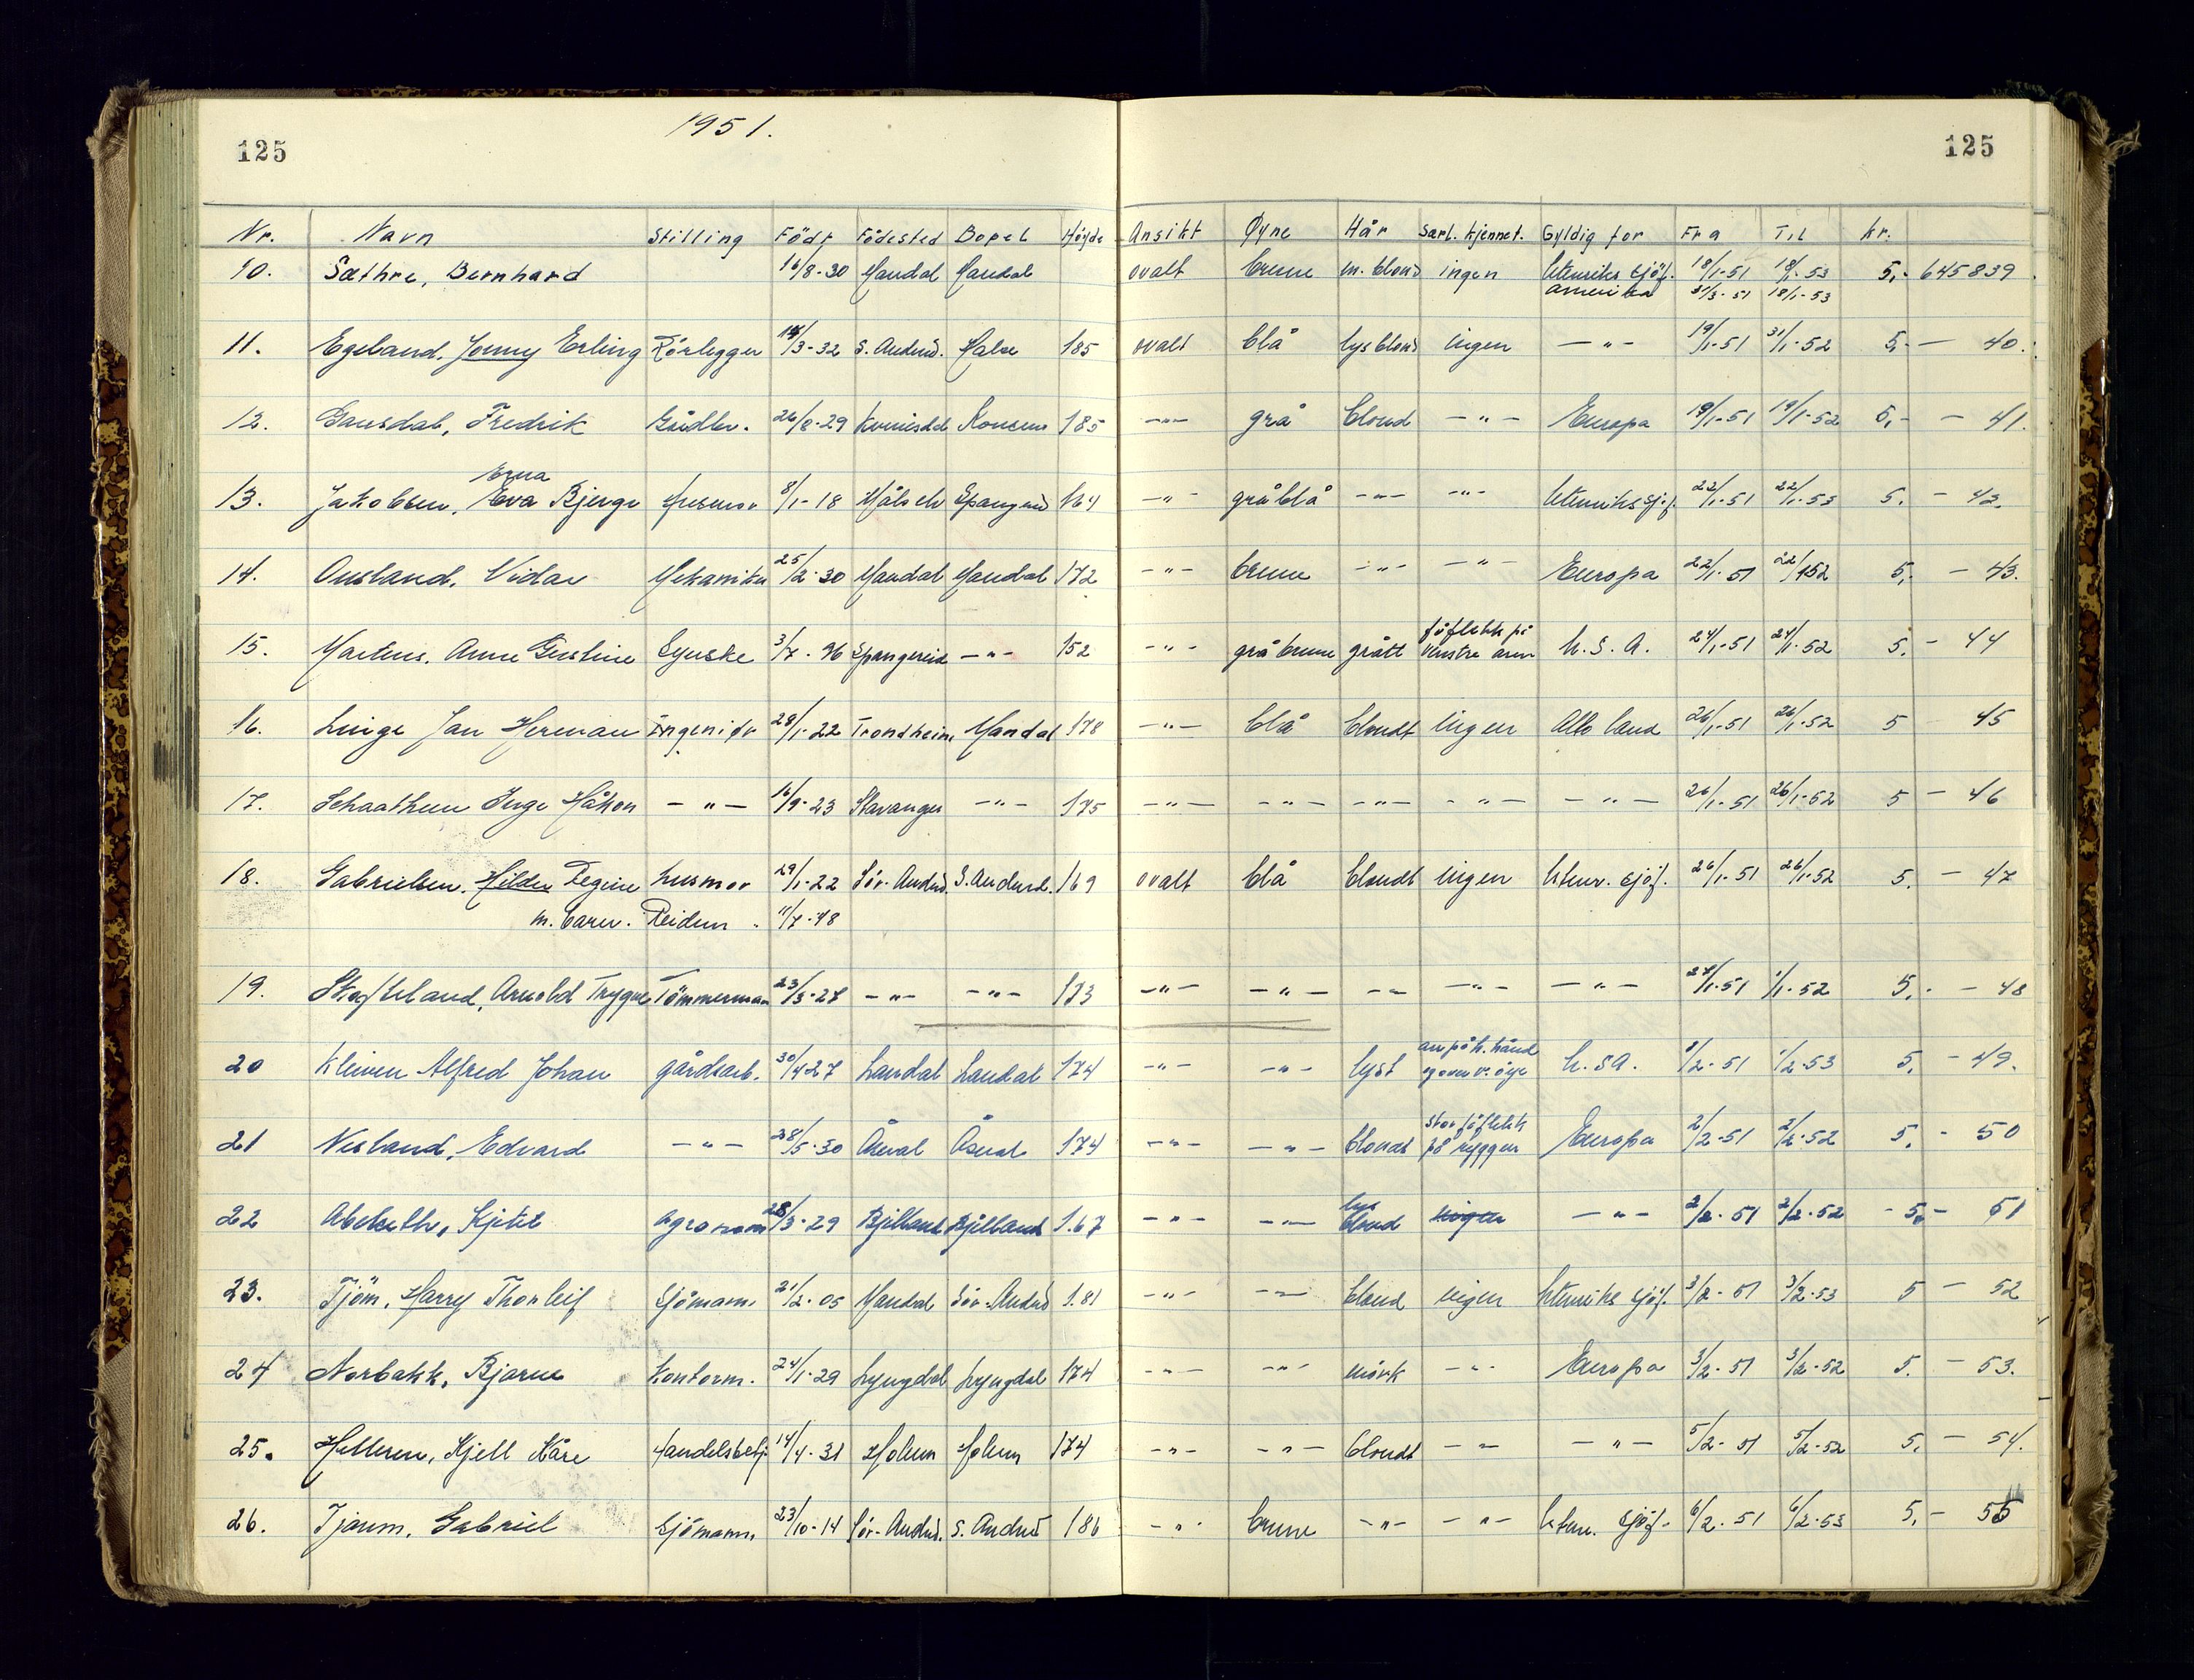 125 1951. 125
Nr. Navn Stilling Född Födested Bopel Höyde Ansikt Øyne Hår Særl. kjennet. Gyldig for Fra Til kr.
10. Sæthre, Bernhard 16/8-30 Mandal Mandal ovalt brune m. blond ingen Utenriks sjöf. 18/1-51 18/1-53 5,- 645839
Amerika 31/3-51 18/1-53
11. Egeland, Jonny Erling Rörlegger 14/3-32 S. Audned. Halse 185 ovalt blå lys blond ingen -"- 19/1-51 31/1-52 5,- - 40.
12. Gausdal, Fredrik 26/8-29 Kvinesdal 185 -"- grå blond -"- Europa 19/1-51 19/1-52 5,- - 41.
Erna
13. Jakobsen, Eva Bjerge Husmor 8/1-18 Spangereid 164 -"- gråblå -"- -"- Utenriks sj.f. 22/1-51 22/1-53 5. - 42.
14. Ousland, Vidar Mekaniker 25/2-30 Mandal Mandal 172 -"- brune -"- -"- Europa 22/1-51 22/1-52 5,- - 43.
föflekk på
15. Martens, Anne Gustine Syerske 3/7-96 Spangereid -"- 152 -"- grå brune grått venstre arm U.S.A. 24/1-51 24/1-52 5. - 44
16. Linge Jan Herman Ingeniör 28/1-22 Trondheim Mandal 178 -"- blå blondt ingen Alle land 26/1-51 26/1-52 5 45
17. Schaathun Inge Håkon -"- 16/9-23 Stavanger -"- 175 -"- -"- -"- -"- -"- 26/1-51 26/1-52 5 - 46
18. Gabrielsen, Hilda Regine husmor 29/1-22 Sör-Audned. S. Audned. 169 ovalt blå blondt ingen Utenr. sjöf. 26/1-51 26/1-52 5. - 47
m. barn. Reidun 11/7-48
19. Skofteland, Arnold Trygve Tömmermann 23/3-27 -"- -"- 173 -"- -"- -"- -"- -"- 27/1-51 1/1-52 5,- - 48
arr på h. hånd
20 Kleiven Alfred Johan gårdsarb. 30/4-27 Laudal Laudal 174 -"- -"- lyst og over v. öye U.S.A. 1/2-51 1/2-53 5. - 49.
stor föflekk
21 Nesland, Edvard -"- 28/5-30 Åseral Åseral 174 -"- -"- blondt på ryggen Europa 2/2-51 2/2-52 5. - 50
lys
22 Abelseth, Kjetil agronom 28/3-29 Bjelland Bjelland 1.67 -"- -"- blond ingen -"- 2/2-51 2/2-52 - 5,- 51
23. Tjöm, Harry Thorleif Sjömann. 21/2-05 Mandal Sör-Audned 1.81 -"- -"- blond ingen Utenriks sjöf. 3/2-51 3/2-53 5 - 52
24 Norbakk, Bjarne Kontorm. 24/1-29 Lyngdal Lyngdal 174 -"- -"- mörk -"- Europa 3/2-51 3/2-52 5. - 53.
25. Helleren, Kjell Kåre Handelsbetj. 14/4-31 Holum Holum 174 -"- -"- blondt -"- -"- 5/2-51 5/2-52 5. - 54.
26. Tjaum, Gabriel Sjömann. 23/10-14 Sör-Audned. S. Audned 186 -"- brune -"- -"- Utenr. sjöf. 6/2-51 6/2-53 5. - 55